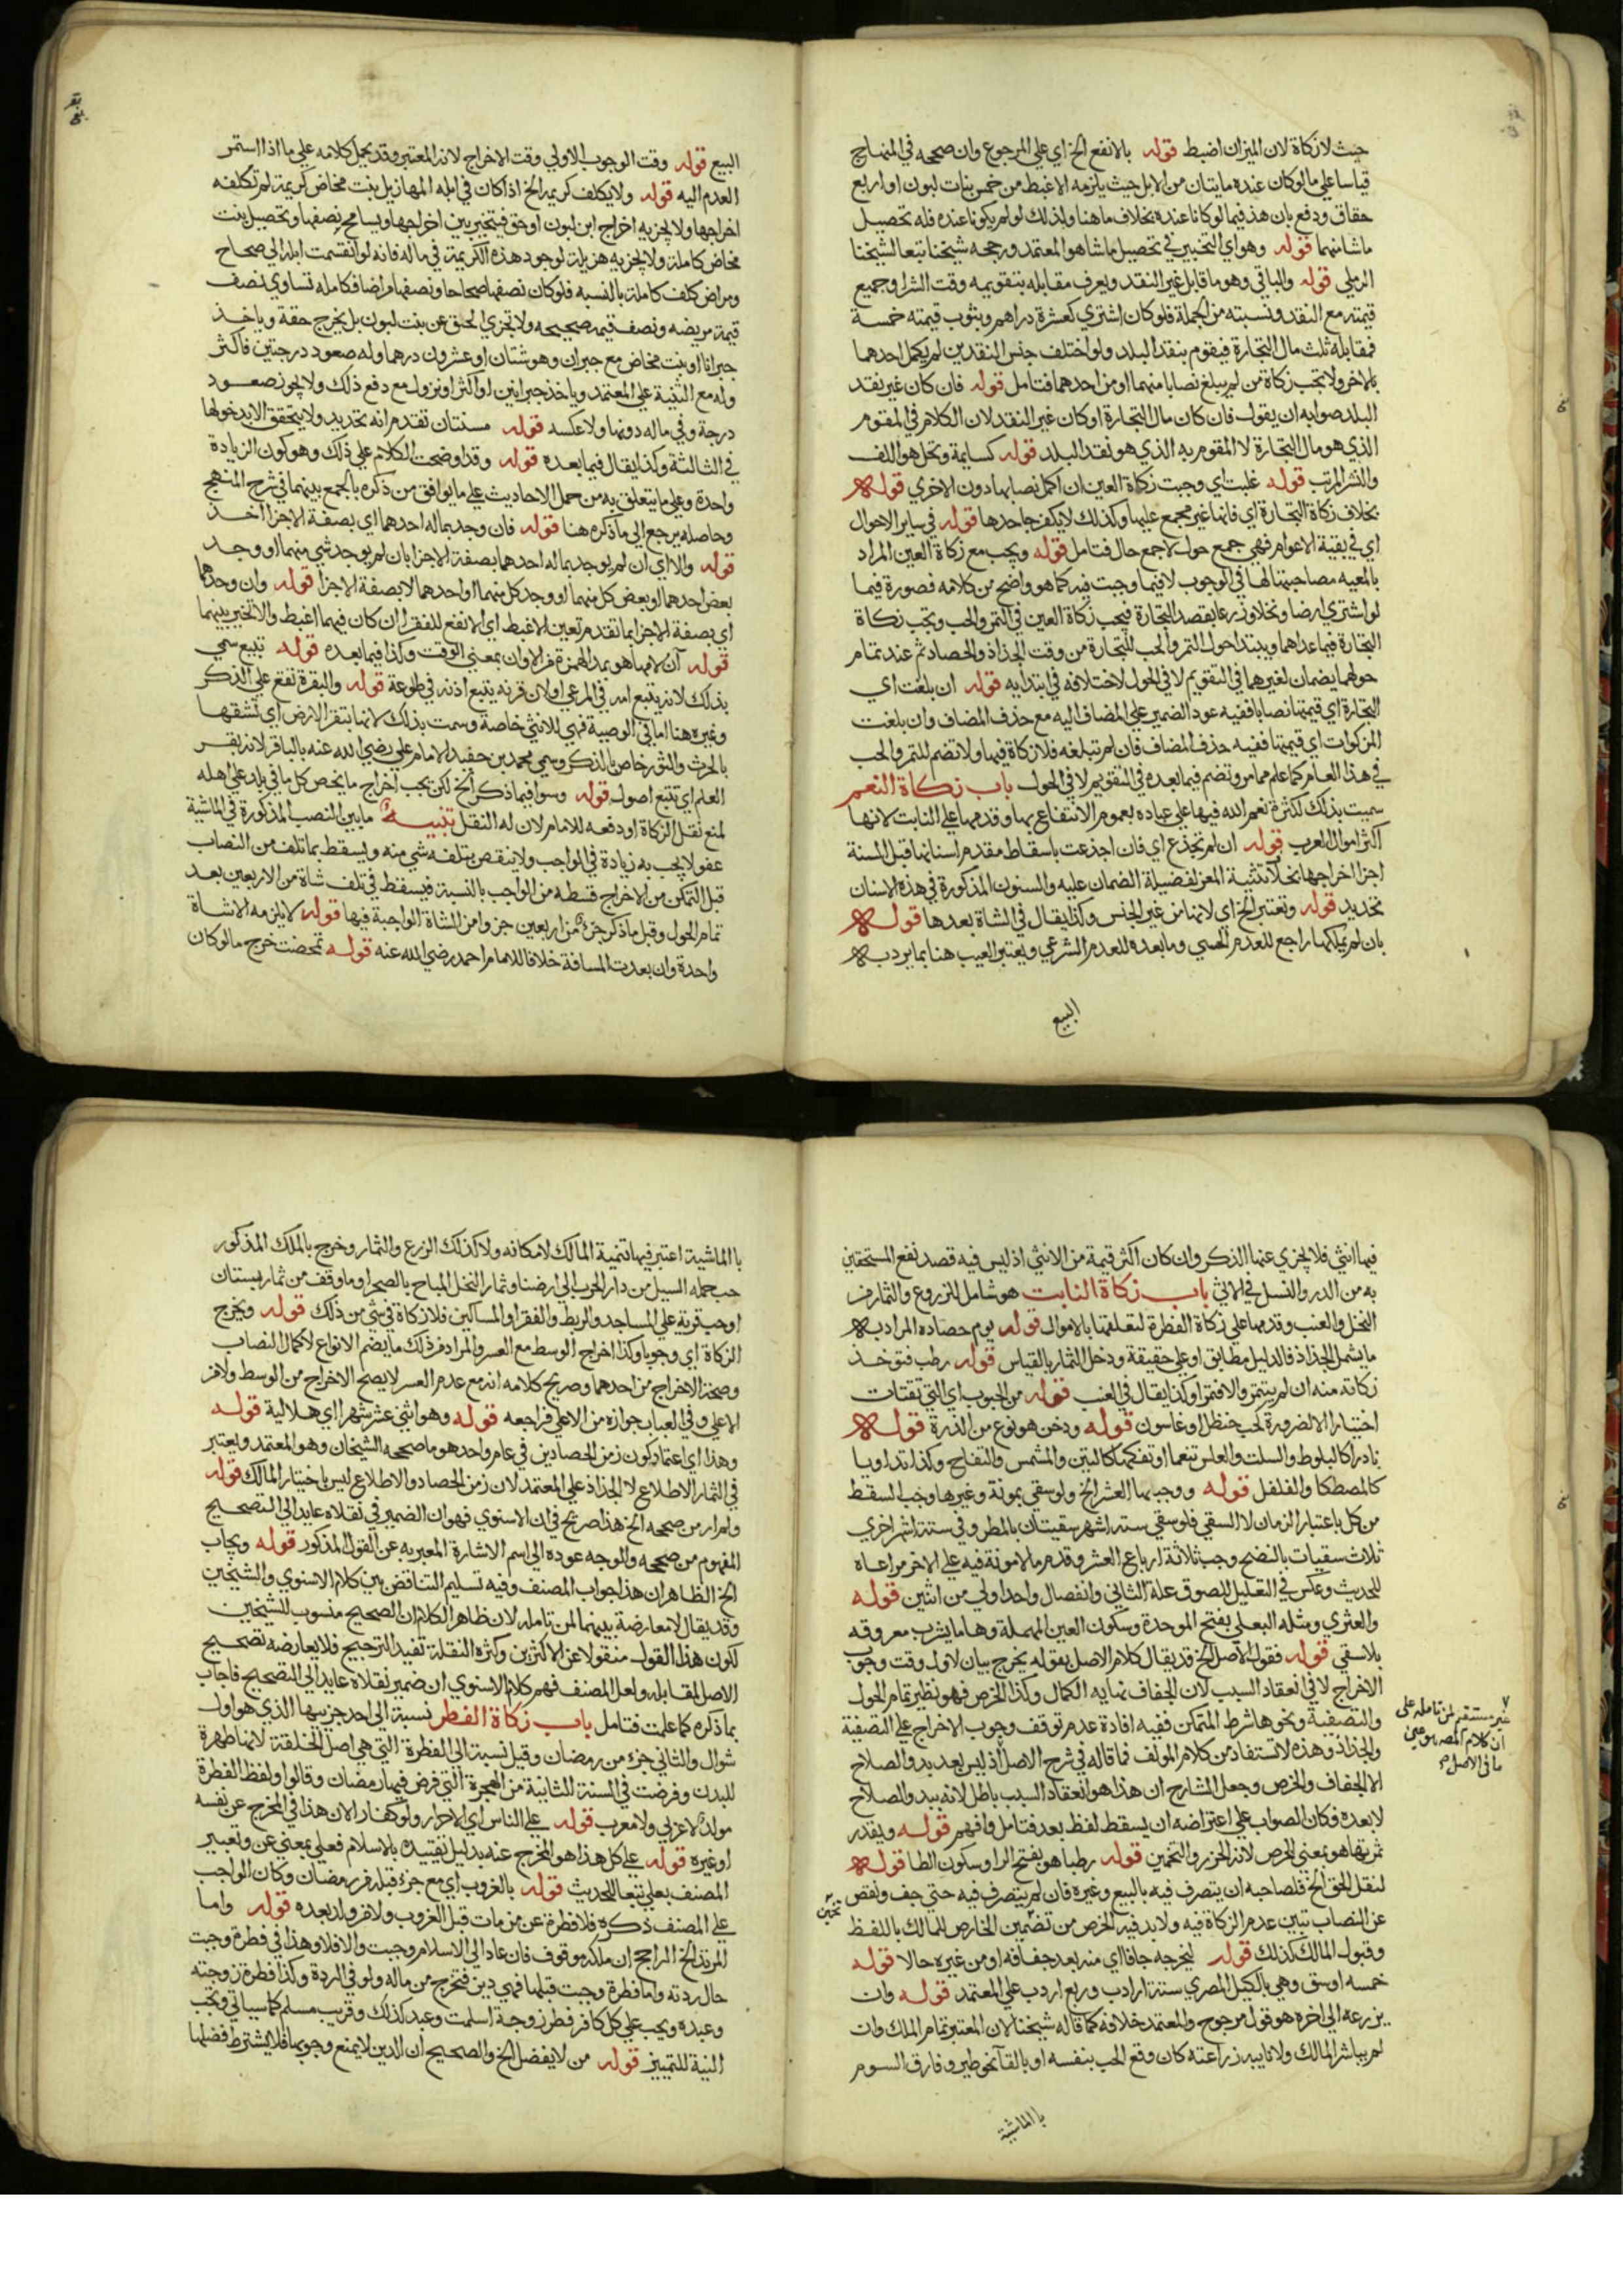 حيث لا زكاة لان الميزان اضبط قوله بالانفع الخ اي علي المرجوع وان صححه في المنهاج
قياسا علي مالو كان عنده مايتان من الابل حيث يلزمه الاغبط من خمس بنات لبون او اربع
حقاق ودفع بان هذ فيما لو كانا عنده بخلاف ما هنا ولذلك لو لم يكونا عنده فله تحصيل
ماشا منهما قوله وهو اي التخيير في تحصيل ماشا هو المعتمد ورجحه شيخنا تبعا لشيخنا
الرملي قوله والباقي وهو ما قابل غير النقد ويعرف مقابله بتقويمه وقت الشرا وجميع
قيمته مع النقد ونسبته من الجملة فلو كان اشتري كعشرة دراهم وبثوب قيمته خمسة
فمقابله ثلث مال التجارة فيقوم بنقد البلد ولو اختلف جنس النقدين لم يكمل احدهما
بالاخر ولا تجب زكاة من لم يبلغ نصابا منهما او من احدهما فتامل قوله فان كان غير نقد
البلد صوابه ان يقول فان كان مال التجارة او كان غير النقد لان الكلام في المقوم
الذي هو مال التجارة لا المقوم به الذي هو نقد البلد قوله كسايمة ونخل هو اللف
والنشر المرتب قوله غلبت اي وجبت زكاة العين ان اكمل نصابها دون الاخري قوله
بخلاف زكاة التجارة اي فانها غير مجمع عليها وكذلك لا يكفر جاحدها قوله في ساير الاحوال
اي في بقية الاعوام فهي جمع حول لا جمع حال فتامل قوله ويجب مع زكاة العين المراد
بالمعيه مصاحبتها لها في الوجوب لا فيما وجبت فيه كما هو واضح من كلامه فصورة فيما
لو اشتري ارضا ونخلا وزرعا بقصد التجارة فيجب زكاة العين في التمر والحب وتجب زكاة
التجارة فيما عداهما ويبتدا حول التمر والحب للتجارة من وقت الجذاذ والحصاد ثم عند تمام
حولهما يضمان لغيرهما في التقويم لا في الحول لاختلافه في ابتدايه قوله ان بلغت اي
التجارة اي قيمتها نصابا ففيه عود الضمير علي المضاف اليه مع حذف المضاف وان بلغت
المزكوات اي قيمتها ففيه حذف المضاف فان لم تبلغه فلا زكاة فيها ولا تضم للتمر والحب
في هذا العام كما علم مما مر وتضم فيما بعده في التقويم لا في الحول باب زكاة النعم
سميت بذلك لكثرة نعم الله فيها علي عباده بعموم الانتفاع بها وقدمها علي النابت لانها
اكثر اموال العرب قوله ان لم تجذع اي فان اجذعت باسقاط مقدم اسنانها قبل السنة
اجزا اخراجها بخلاف ثنية المعز لفضيلة الضمان عليه والسنون المذكورة في هذه الاسنان
تحديد قوله وتعتبر الخ اي لانها من غير الجنس وكذا يقال في الشاة بعدها قوله
بان لم يملكها راجع للعدم الحسي وما بعده للعدم الشرعي ويعتبر العيب هنا بما يرد به
البيع
البيع قوله وقت الوجوب الاولي وقت الاخراج لانه المعتبر وقد يحمل كلامه علي ما اذا استمر
العدم اليه قوله ولا يكلف كريمه الخ اذا كان في ابله المهازيل بنت مخاض كريمة لم تكلفه
اخراجها ولا يجزيه اخراج ابن لبون او حق فيتخير بين اخراجها ويسامح بنصفها وتحصيل بنت
مخاض كاملة ولا يجزيه هزيلة لوجود هذه الكريمة في ماله فانه لو انقسمت ابله الي صحاح
ومراض كلف كاملة بالنسبه فلو كان نصفها صحاحا ونصفها مراضا فكامله تساوي نصف
قيمة مريضه ونصف قيمه صحيحه ولا تجزي الحق عن بنت لبون بل يخرج حقة وياخذ
جبرانا او بنت مخاض مع جبران وهو شتان او عشرون درهما وله صعود درجتين فاكثر
وله مع الثنية علي المعتمد وياخذ جبرانين او اكثر او نزول مع دفع ذلك ولا يجوز صعود
درجة وفي ماله دونها ولا عكسه قوله مسنتان تقدم انه تحديد ولا يتحقق الا بدخولها
في الثالثة وكذا يقال فيما بعده قوله وقد اوضحت الكلام علي ذلك وهو كون الزيادة
واحدة وعلي ما يتعلق به من حمل الاحاديث علي ما يوافق من ذكره بالجمع بينهما في شرح المنهج
وحاصله يرجع الي ما ذكره هنا قوله فان وجد بماله احدهما اي بصفة الاجزا اخذ
قوله والا اي ان لم يوجد بماله احدهما بصفة الاجزا بان لم يوجد شي منهما او وجد
بعض احدهما او بعض كل منهما او وجد كل منهما او احدهما لا بصفة الاجزا قوله وان وجدهما
اي بصفة الاجزا بما تقدم تعين الاغبط اي الانفع للفقرا ان كان فيهما اغبط والا تخير بينهما
قوله آن لامها هو بمد الهمزة من الاوان بمعني الوقت وكذا فيما بعده قوله تبيع سمي
بذلك لانه يتبع امه في المرعي او لان قرنه يتبع اذنه في طوعه قوله والبقرة تقع علي الذكر
وغيره هنا اما في الوصية فهي للانثي خاصة وسمت بذلك لانها تبقر الارض اي تشقها
بالحرث والثور خاص بالذكر وسمي محمد بن حفيد الامام علي رضي الله عنه بالباقر لانه بقر
العلم اي تتبع اصوله قوله وسوا فيما ذكر الخ لكن يجب اخراج ما يخص كل ما في بلد علي اهله
لمنع نقل الزكاة او دفعه للامام لان له النقل تنبيه ما بين النصب المذكورة في الماشية
عفو لا يجب به زيادة في الواجب ولا ينقص بتلفه شي منه ويسقط بما تلف من النصاب
قبل التمكن من الاخراج قسطه من الواجب بالنسبة فيسقط في تلف شاة من الاربعين بعد
تمام الحول وقبل ما ذكر جزء من اربعين جزوا من الشاة الواجبة فيها قوله لا يلزمه الا شاة
واحدة وان بعدت المسافة خلافا للامام احمد رضي الله عنه قوله تمحضت خرج مالو كان
فيها انثي فلا يجزي عنها الذكر وان كان اكثر قيمة من الانثي اذ ليس فيه قصد نفع المستحقين
به من الدر والنسل في الانثي باب زكاة النابت هو شامل للزروع والثمار من
النخل والعنب وقدمها علي زكاة الفطرة لتعلقها بالاموال قوله يوم حصاده المراد به
ما يشمل الجذاذ فالدليل مطابق او علي حقيقة ودخل الثمار بالقياس قوله رطب فتوخذ
زكاته منه ان لم يتتمر والا فتمرا وكذا يقال في العنب قوله من الحبوب اي التي تقتات
اختيارا الا لضرورة كحب حنظل او غاسون قوله ودخن هو نوع من الذرة قوله
نادرا كالبلوط والسلت والعلس تنعما او تفكها كالتين والمشمش والتفاح وكذا تداويا
كالمصطكا والفلفل قوله ووجب لها العشر الخ ولو سقي بمونة وغيرها وجب القسط
من كل باعتبار الزمان لا السقي فلو سقي ستة اشهر سقيتان بالمطر وفي ستة اشهر اخري
ثلاث سقيات بالنضح وجب ثلاثة ارباع العشر وقدم ما لا مونة فيه علي الاخر مراعاه
للحديث وعكس في التعليل للصوق علة الثاني وانفصال واحد اولي من اثنين قوله
والعثري ومثله البعلي بفتح الموحدة وسكون العين المهملة وهما ما يشرب بعروقه
بلا سقي قوله فقول الاصل الخ قد يقال كلام الاصل بقوله يخرج بيان لاول وقت وجوب
الاخراج لا في انعقاد السبب لان الجفاف نهايه الكمال وكذا الخرص فهو نظير تمام الحول
والتصفية ونحوها شرط المتمكن ففيه افادة عدم توقف وجوب الاخراج علي التصفية
والجذاذ وهذه لا تستفاد من كلام المولف فما قاله في شرح الاصل اذ ليس بعد بدو الصلاح
الا الجفاف والخرص وجعل الشارح ان هذا هو انعقاد السبب باطل لانه ببدو الصلاح
لا بعده فكان الصواب علي اعتراضه ان يسقط لفظ بعد فتامل وافهم قوله ويقدر
ثمرتها هو بمعني الخرص لانه الحزر والتخمين قوله رطبا هو بفتح الرا وسكون الطا قوله
لنقل الحق الخ فلصاحبه ان يتصرف فيه بالبيع وغيره فان لم يتصرف فيه حتي جف ونقص
عن النصاب تبين عدم الزكاة فيه ولابد فيه الخرص من تضمين الخارص للمالك باللفظ
وقبول المالك كذلك قوله ليخرجه جافا اي منه بعد جفافه او من غيره حالا قوله
خمسه اوسق وهي بالكيل المصري ستة ارادب وربع اردب علي المعتمد قوله وان
يزرعه الي اخره هو قول مرجوح والمعتمد خلافه كما قاله شيخنا لان المعتبر تمام الملك وان
لم يباشر المالك ولا نايبه زراعته كان وقع الحب بنفسه او بالقا نحو طير وفارق السوم
غير مستقيم لمن تامله علي
ان كلام المصـ
ما في الاصل
بالماشية
بالماشية اعتبر فيها تنمية المالك لامكانه ولا كذلك الزرع والثمار وخرج بالملك المذكور
حب حمله السيل من دار الحرب الي ارضنا وثمار النخل المباح بالصحرا وما وقف من ثمار بستان
او حب قرية علي المساجد والربط والفقرا والمساكين فلا زكاة في شي من ذلك قوله ويخرج
الزكاة اي وجوبا وكذا اخراج الوسط مع العسر والمراد من ذلك ما يضم الانواع لاكمال النصاب
وصحة الاخراج من احدهما وصريح كلامه انه مع عدم العسر لا يصح الاخراج من الوسط ولا من
الاعلي وفي العباب جوازه من الاعلي فراجعه قوله وهو اثني عشر شهرا اي هلالية قوله
وهذا اي اعتبار كون زمن الحصادين في عام واحد هو ما صححه الشيخان وهو المعتمد ويعتبر
في الثمار الاطلاع لا الجذاذ علي المعتمد لان زمن الحصاد والاطلاع ليس باختيار المالك قوله
ولم ار من صححه الخ هذا صريح في ان الاسنوي فهم ان الضمير في نقلاه عايد الي التصحيح
المفهوم من صححه والوجه عوده الي اسم الاشارة المعبر به عن القول المذكور قوله ويجاب
الخ الظاهر ان هذا جواب المصنف وفيه تسليم التناقض بين كلام الاسنوي والشيخين
وقد يقال لا معارضة بينهما لمن تامله لان ظاهر الكلام ان الصحيح منسوب للشيخين
لكون هذا القول منقولا عن الاكثرين وكثرة النقلة تفيد الترجيح فلا يعارضه تصحيح
الاصل المقابله ولعل المصنف فهم كلام الاسنوي ان ضمير نقلاه عايد الي التصحيح فاجاب
بما ذكره كما علمت فتامل باب زكاة الفطر نسبة الي احد جزييها الذي هو اول
شوال والثاني جزء من رمضان وقيل نسبة الي الفطرة التي هي اصل الخلقة لانها طهرة
للبدن وفرضت في السنة الثانية من الهجرة التي فرض فيها رمضان وقالوا ولفظ الفطرة
مولد لا عربي ولا معرب قوله علي الناس اي الاحرار ولو كفارا لان هذا في المخرج عن نفسه
او غيره قوله علي كل هذا هو المخرج عنه بدليل تقييده بالاسلام فعلي بمعني عن وتعبير
المصنف بعلي تبعا للحديث قوله بالغروب اي مع جزء قبله من رمضان وكان الواجب
علي المصنف ذكره فلا فطرة عن من مات قبل الغروب ولا من ولد بعده قوله واما
المرتد الخ الراجح ان ملكه موقوف فان عاد الي الاسلام وجبت والا فلا وهذا في فطرة وجبت
حال ردته واما فطرة وجبت قبلها فهي دين فتخرج من ماله ولو في الردة وكذا فطرة زوجته
وعبده ويجب علي كل كافر فطر زوجة اسلمت وعبد كذلك وقريب مسلم كما سياتي وتجب
النية للتمييز قوله من لا يفضل الخ والصحيح ان الدين لا يمنع وجوبها فلا يشترط فضلها